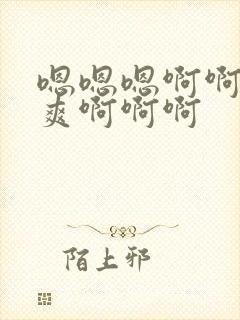 嗯嗯嗯啊啊
爽啊啊啊
陌上邪